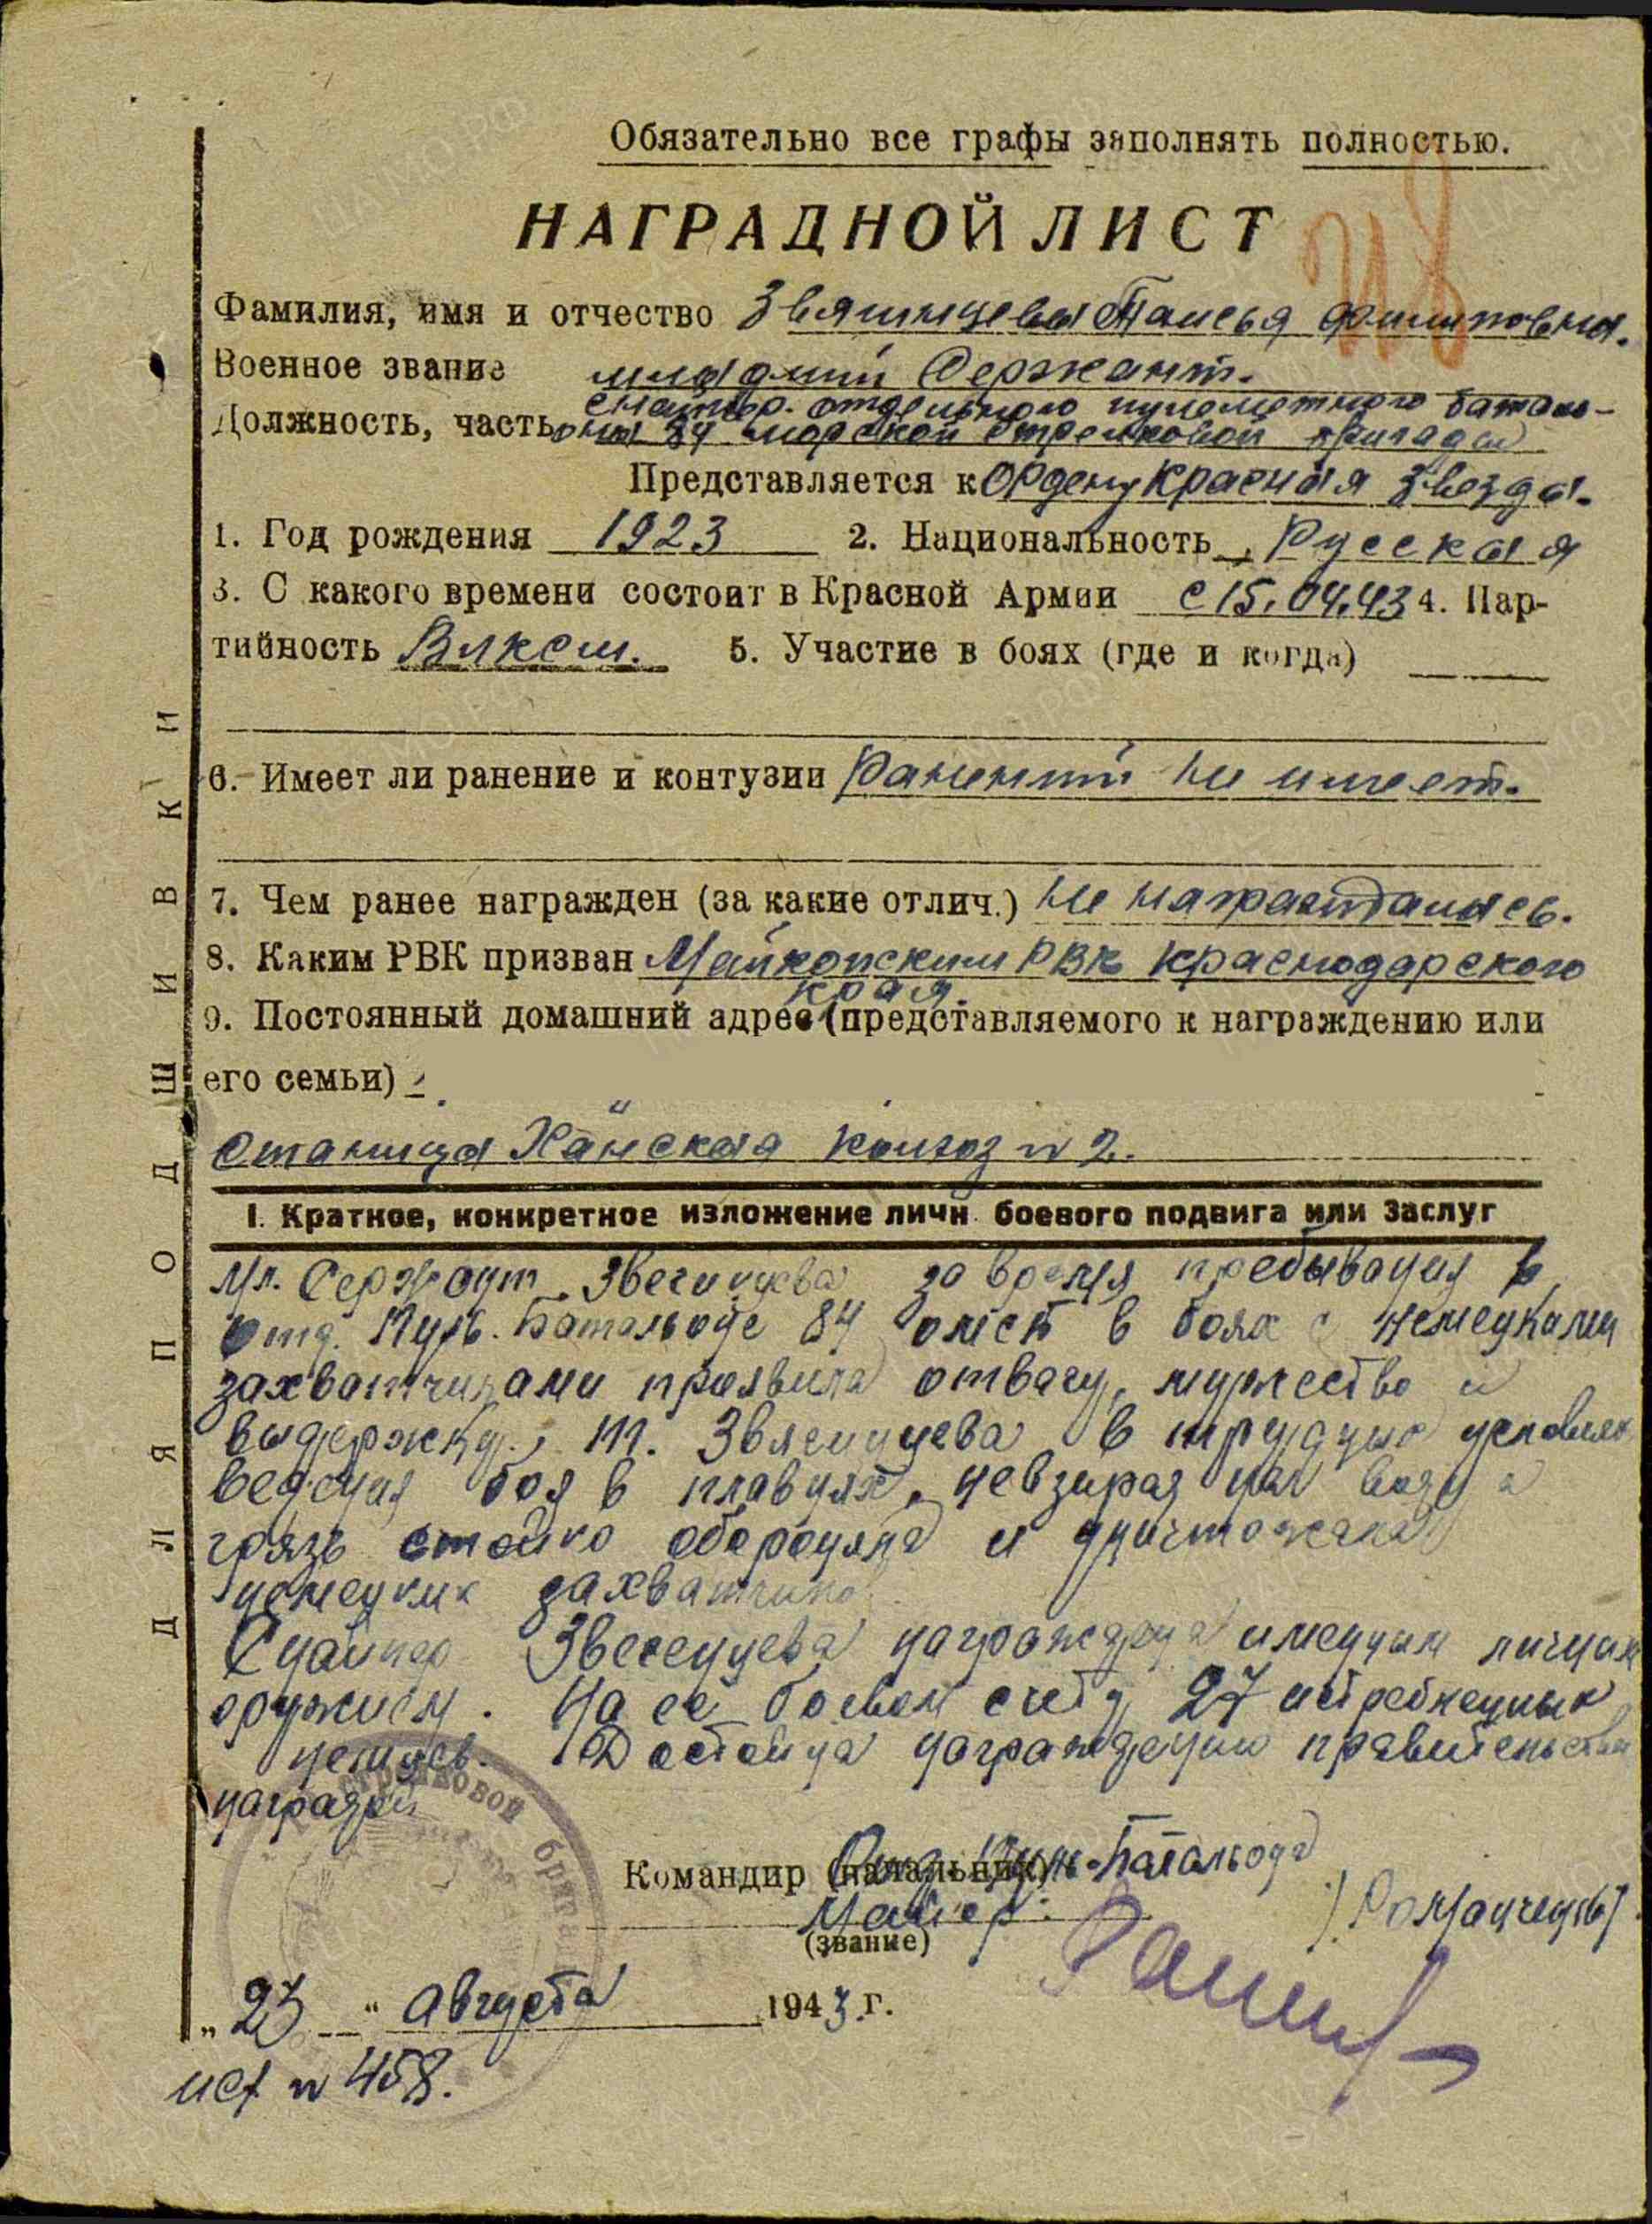 Обязательно все графы заполнять полностью.
НАГРАДНОЙ ЛИСТ
Фамилия, имя и отчество Таисья Филиповна.
Военное звание младший Сержант.
снайпер. отдельного пулеметного баталь-
Должность, часть она 84 морской стрелковой бригады
Представляется к Ордену Красная Звезда.
1. Год рождения 1923 2. Национальность Русская
3. С какого времени состоит в Красной Армии с 15.04.43 4. Пар-
тийность Влксм. 5. Участие в боях (где и когда)
6. Имеет ли ранение и контузии Ранений не имеет.
7. Чем ранее награжден (за какие отлич.) не награждалась.
8. Каким РВК призван Майкопским РВК Краснодарского
края.
9. Постоянный домашний адрес (представляемого к награждению или
его семьи)
станица Ханская колхоз n 2.
I. Кратное, конкретное изложение личн. боевого подвига или Заслуг
Мл. Сержант за время пребывания в
отд. Пул. Батальоне 84 омсб в боях с немецкими
захватчиками проявила отвагу, мужество и
выдержку. т. в трудных условиях
ведения боя в плавнях, невзирая на воду и
грязь стойко обороняла и уничтожала
немецких захватчиков.
Снайпер награждена именным личным
оружием. На её боевом счету 27 истребленных
немцев. Достойна награждению правительствен
наградой
стрелковой брига
Командир (начальник) Отд. Пул. Батальона
Майор.
(звание)
„ 23 “ Августа 1943 г.
исх n 458.
ДЛЯ ПОДШИВКИ